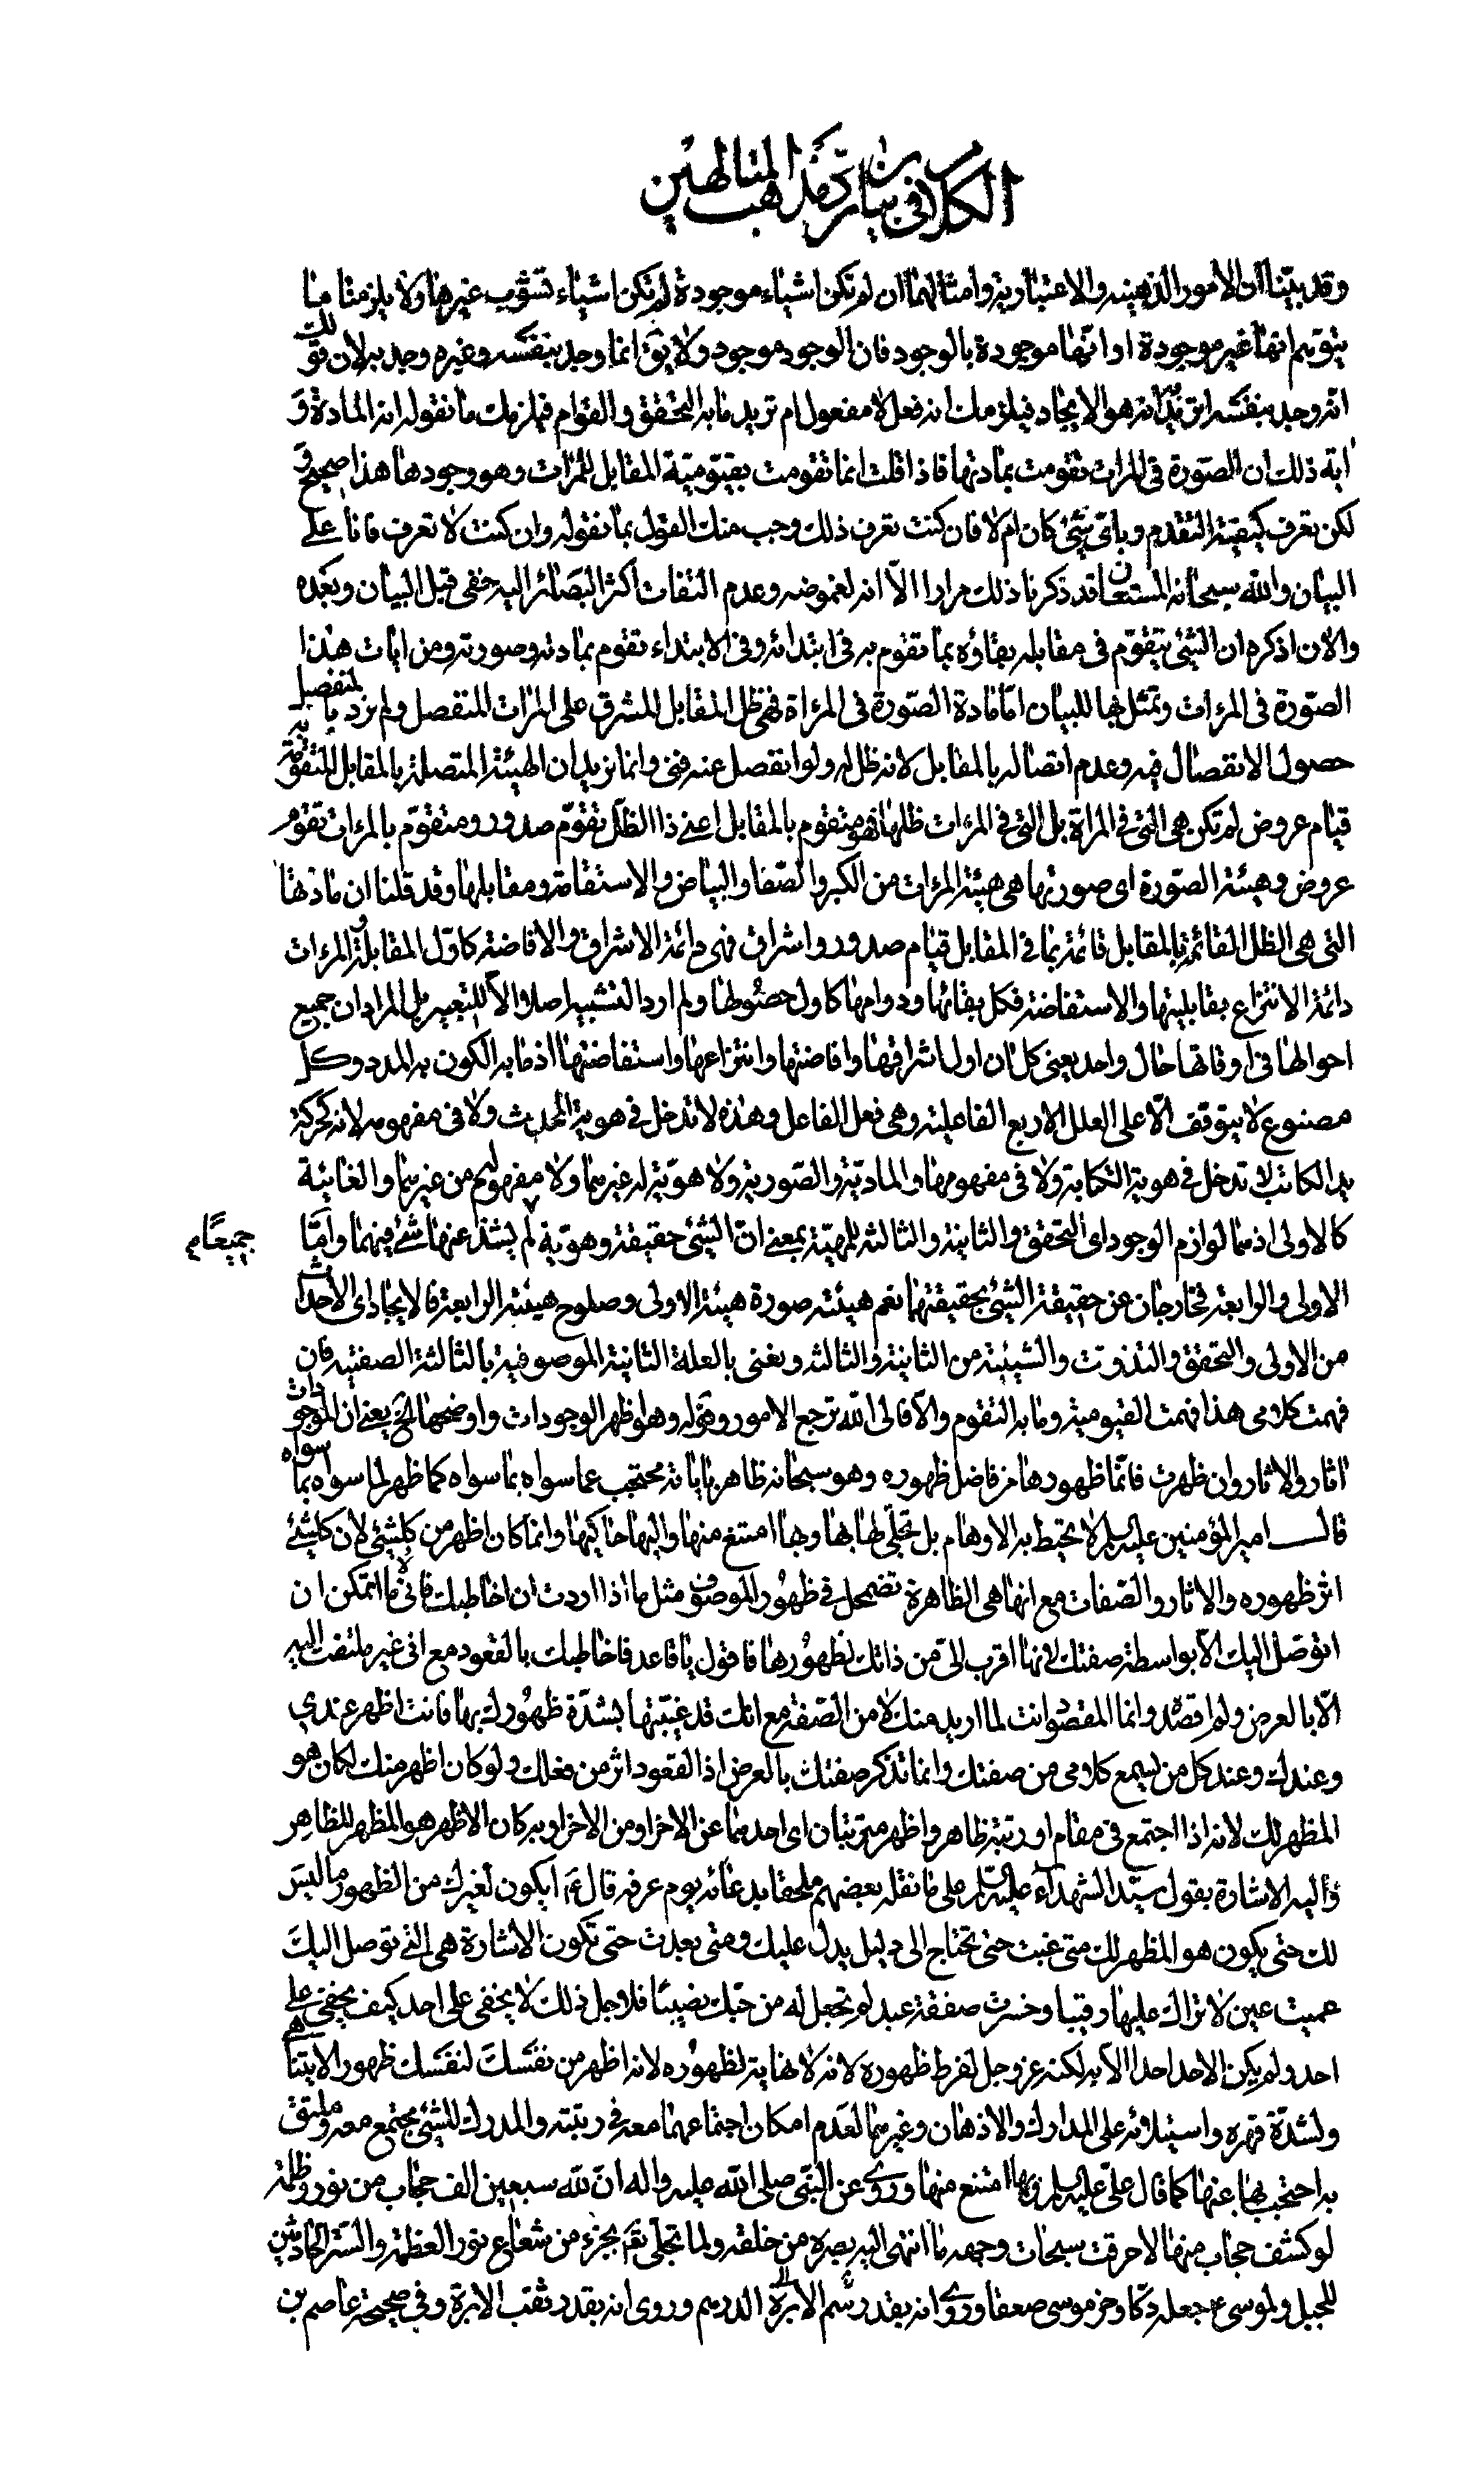 الكلام فى بيان ردّ مذهب المتالهين
وقد بيّنا ان الامور الذهنية والاعتبارية وامثالهما ان لم تكن اشياء موجودة لم تكن اشياء تسوّب غيرها ولا يلزمنا ما
يتوهم انها غير موجودة او انّها موجودة بالوجود فان الوجود موجود ولا يق انما وجد بنفسه وغيره وجد به لان قولك
انه وجد بنفسه اتريد انه هو الايجاد فيلزمك انه فعل لا مفعول ام تريد ما به التحقق والقوام فيلزمك ما نقوله انه المادة و
اية ذلك ان الصّورة فى المرات تقومت بمادتها فاذا قلت انما تقومت بقيّوميّة المقابل للمرات وهو وجودها هذا صحيح و
لكن تعرف كيفية التقدم وباىّ شئ كان ام لا فان كنت تعرف ذلك وجب منك القول بما نقوله وان كنت لا تعرف فانا علىّ
البيان والله سبحانه المستعان قد ذكرنا ذلك مرارا الاّ انه لغموضه وعدم التفات اكثر البصائر اليه خفى قبل البيان وبعده
والان اذكره ان الشئ يتقوّم فى مقابله بقاؤه بما تقوم به فى ابتدائه وفى الابتداء تقوم بمادته وصورته ومن ايات هذا
الصّورة فى المرءات وتمثل بها للبيان امّا مادة الصّورة فى المرءاة فهى ظل المقابل المشرق على المرات المنفصل ولم نرد بالمنفصل
حصول الانفصال فيه وعدم اتصاله بالمقابل لانه ظل له ولو انفصل عنه فنى وانما نريد ان الهيئة المتصلة بالمقابل المتقومة به
قيام عروض لم تكن هى التى فى المراة بل التى فى المرءات ظلها فهو متقوم بالمقابل اعنى ذا الظل تقوّم صدور ومتقوّم بالمرءات تقوم
عروض وهيئة الصّورة اى صورتها هى هيئة المرءات من الكبر والصّفا والبياض والاستقامة ومقابلها وقد قلنا ان مادتها
التى هى الظل القائمة بالمقابل قائمة بما فى المقابل قيام صدور واشراق فهى دائمة الاشراق والافاضة كاوّل المقابلة والمرءات
دائمة الانتزاع بقابليتها والاستفاضة فكل بقائها ودوامها كاول حصولها ولم ارد التشبيه اصلا الاّ للتعبير بل المراد ان جميع
احوالها فى اوقاتها حال واحد يعنى كل ان اول اشراقها وافاضتها وانتزاعها واستفاضتها اذ ما به الكون به المدد وكل
مصنوع لا يتوقّف الاّ على العلل الاربع الفاعلية وهى فعل الفاعل وهذه لا تدخل فى هوية المحدث ولا فى مفهومه لانه كحركة
يد الكاتب لا تدخل فى هوية الكتابة ولا فى مفهومها والماديّة والصّورية ولا هويّة له غيرهما ولا مفهوم من غيرهما والغائية
كالاولى اذ هما لوازم الوجود اى التحقق والثانية والثالثة للمهيّة بمعنى انّ الشئ حقيقة وهويّة لم يشذ عنها شئ فيهما وامّا
جميعًا م
الاولى والرابعة فخارجان عن حقيقة الشئ بحقيقتهما نعم هيئته صورة هيئة الاولى وصلوح هيئته الرابعة فالايجاد اى الاحداث
من الاولى والتحقق والتذوت والشيئية من الثانية والثالثة ونعنى بالعلة الثانية الموصوفية بالثالثة الصفتية فان
فهمت كلامى هذا فهمت القيومية وما به التقوم والاّ فالى الله ترجع الامور وقوله وهو اظهر الوجودات واوضحها الخ يعنى ان الموجودات
اثار والاثار وان ظهرت فانّما ظهورها من فاضل ظهوره وهو سبحانه ظاهر باياته محتجب عما سواه بما سواه كما ظهر لما سواه بما سواه
قال امير المؤمنين عليه السلم لا تحيط به الاوهام بل تجلّى لها بها وبها امتنع منها واليها حاكمها وانما كان اظهر من كلشئ لان كلشئ
اثر ظهوره والاثار والصّفات مع انها هى الظاهرة تضمحل فى ظهور الموصوف مثل ما اذا اردت ان اخاطبك فانى لا اتمكن ان
اتوصّل اليك الاّ بواسطة صفتك فانها اقرب الىّ من ذاتك لظهورها فاقول يا قاعد فاخاطبك بالقعود مع انى غير ملتفت اليه
الاّ بالعرض ولم اقصده وانما المقصود انت لما اريد منك لا من الصّفة مع انك قد غيّبتها بشدّة ظهورك بها فانت اظهر عندى
وعندك وعند كل من يسمع كلامى من صفتك وانما تذكر صفتك بالعرض اذ القعود اثر من فعلك ولو كان اظهر منك لكان هو
المظهر لك لانه اذا اجتمع فى مقام او رتبة ظاهر واظهر مترتبان اى احدهما عن الاخر او من الاخر او به كان الاظهر هو المظهر للظاهر
واليه الاشارة بقول سيّد الشهداء عليه السّلم على ما نقله بعضهم ملحقا بدعائه يوم عرفه قال ع ايكون لغيرك من الظهور ما ليس
لك حتى يكون هو المظهر لك متى غبت حتى تحتاج الى دليل يدل عليك ومتى بعدت حتى تكون الاشارة هى التى توصل اليك
عميت عين لا تراك عليها رقيبا وخسرت صفقة عبد لم تجعل له من حبّك نصيبًا فلاجل ذلك لا يخفى على احد كيف يخفى على
احد ولم يكن الاحد احدا الاّ به لكنه عز وجل لفرط ظهوره لانه لا نهاية لظهوره لانه اظهر من نفسك لنفسك ظهور الا يتناهى
ولشدّة قهره واستيلائه على المدارك والاذهان وغيرهما لعدم امكان اجتماعهما معه فى رتبته والمدرك للشئ مجتمع معه وملتق
به احتجب بها عنها كما قال علىّ عليه السلم وبها امتنع منها وروى عن النبّى صلى الله عليه واله انّ لله سبعين الف حجاب من نور وظلمة
لو كشف حجاب منها لاحرقت سبحات وجهه ما انتهى اليه بصره من خلقه ولما تجلّى تعَ بجزء من شعاع نور العظمة والستر الحادثين
للجبل ولموسى ع جعله دكّا وخر موسى صعقا وروى انه بقدر سم الابرة الدرهم وروى انه بقدر ثقب الابرة وفى صحيحة عاصم بن